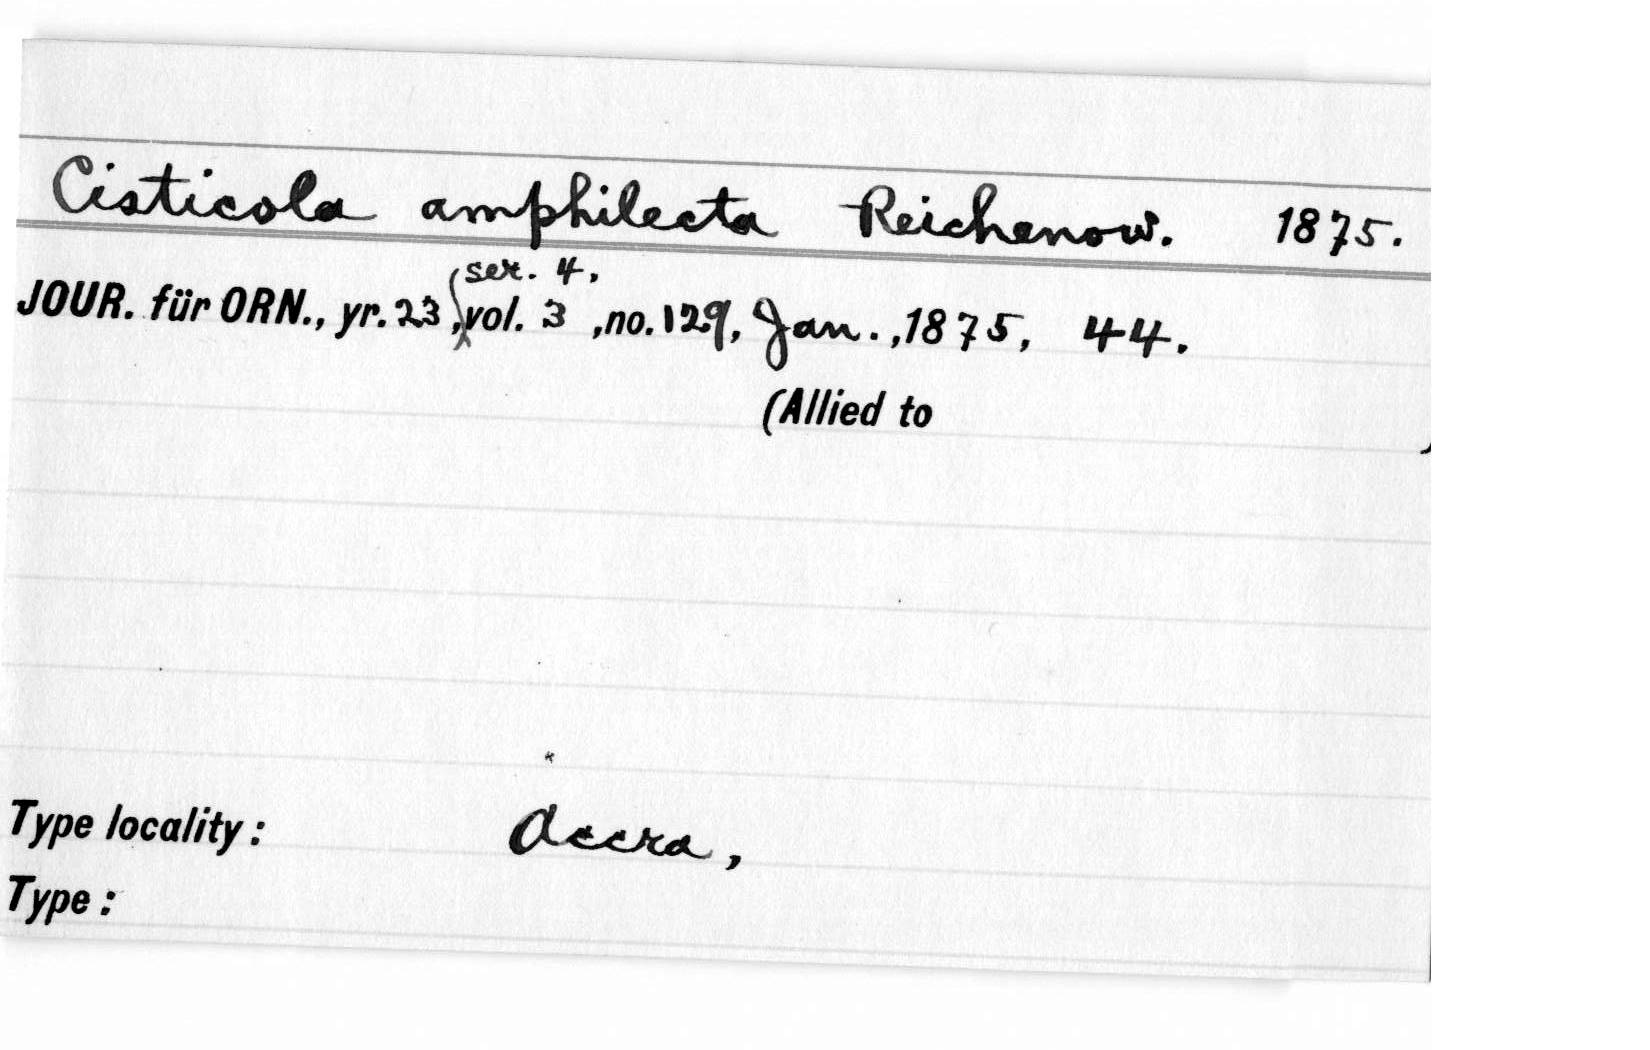 Cisticola amphilecta Reichenow. 1875.
JOUR. für ORN., yr. 23, ser. 4, vol. 3, no. 129, Jan., 1875, 44.
(Allied to )
Type locality: Accra,
Type: